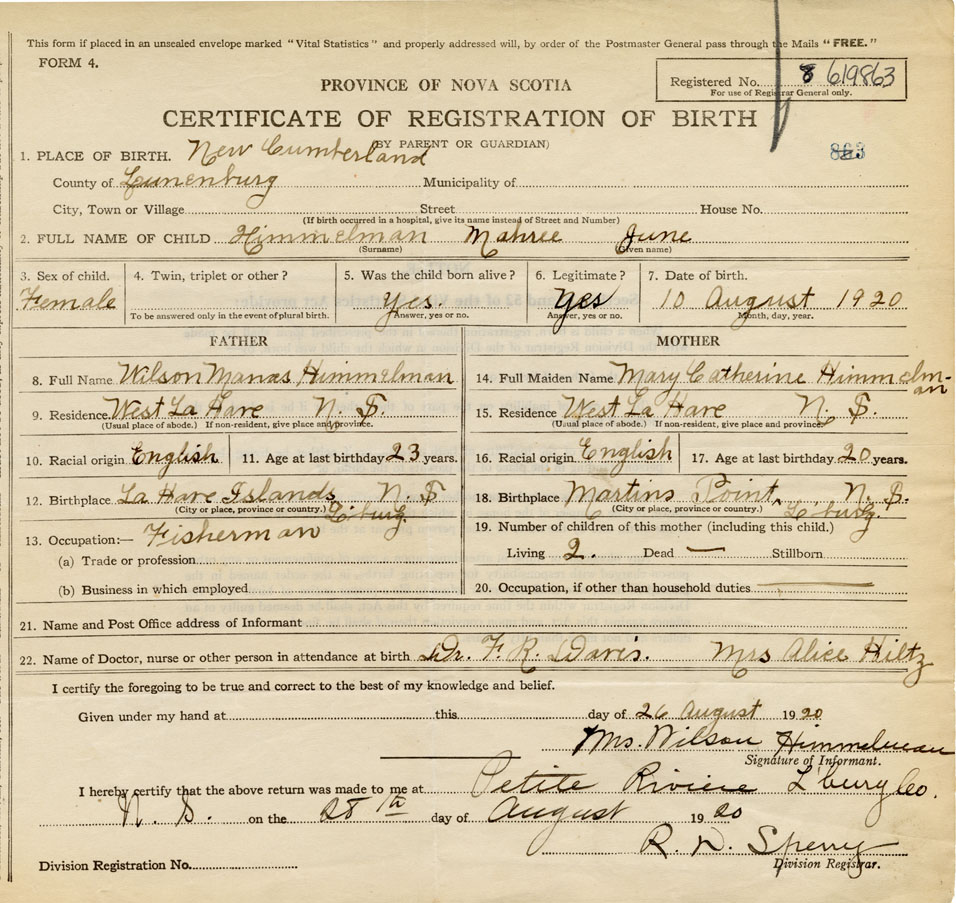 This form if placed in an unsealed envelope marked "Vital Statistics" and properly addressed will, by order of the Postmaster General pass through the Mails "FREE."
FORM 4.
Registered No. 8 619863
For use of Registrar General only.
PROVINCE OF NOVA SCOTIA
CERTIFICATE OF REGISTRATION OF BIRTH
(BY PARENT OR GUARDIAN)
1. PLACE OF BIRTH. New Cumberland
County of Lunenburg Municipality of
City, Town or Village Street House No.
(If birth occurred in a hospital, give its name instead of Street and Number)
2. FULL NAME OF CHILD Himmelman Mahree June
(Surname) (Given name)
3. Sex of child. 4. Twin, triplet or other? 5. Was the child born alive? 6. Legitimate? 7. Date of birth.
Female Yes. Yes 10 August 1920
To be answered only in the event of plural birth. Answer, yes or no. Answer, yes or no. Month, day, year.
FATHER MOTHER
8. Full Name Wilson Manas Himmelman 14. Full Maiden Name Mary Catherine Himmelman
9. Residence. West La Have N. S. 15. Residence West La Have N. S.
(Usual place of abode.) If non-resident, give place and province. (Usual place of abode.) If non-resident, give place and province.
10. Racial origin English 11. Age at last birthday 23 years. 16. Racial origin English 17. Age at last birthday 20 years.
12. Birthplace La Have Islands N. S 18. Birthplace Martins Point, N. S.
(City or place, province or country.) L'burg. (City or place, province or country.) L'burg.
13. Occupation:— Fisherman 19. Number of children of this mother (including this child.)
(a) Trade or profession Living 2. Dead — Stillborn
(b) Business in which employed 20. Occupation, if other than household duties
21. Name and Post Office address of Informant
22. Name of Doctor, nurse or other person in attendance at birth Dr. F. R. Davis. Mrs Alice Hiltz
I certify the foregoing to be true and correct to the best of my knowledge and belief.
Given under my hand at this day of 26 August 1920
Mrs. Wilson Himmelman
Signature of Informant.
I hereby certify that the above return was made to me at Petite Riviere L'burg Co.
N. S. on the 28th day of August 1920
R. D. Sperry
Division Registration No. Division Registrar.